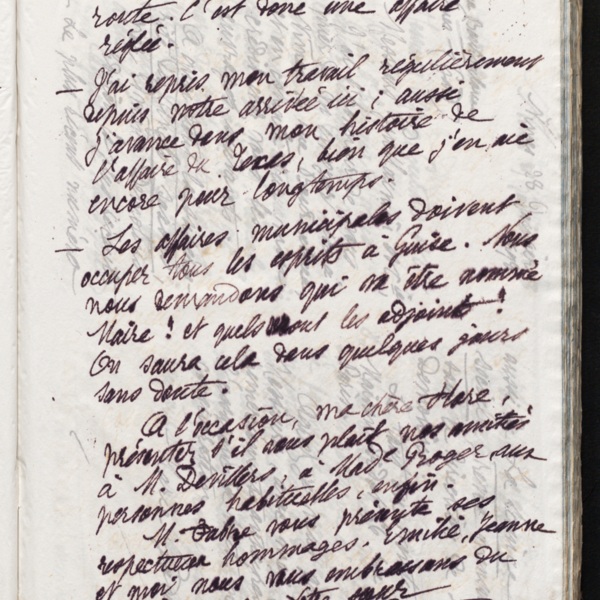 route. C'est donc une affaire
réglée.
— J'ai repris mon travail régulièrement
depuis notre arrivée ici ; aussi
j'avance dans mon histoire de
l'affaire du Texas, bien que j'en aie
encore pour longtemps.
— Les affaires municipales doivent
occuper tous les esprits à Guise. Nous
nous demandons qui va être nommé
Maire ! et quels sont les adjoints !
On saura cela dans quelques jours
sans doute.
A l'occasion, ma chère Flore,
présentez s'il vous plait nos amitiés
à M. Devillers, à Made Proger, aux
personnes habituelles, enfin.
M. Fabre vous présente ses
respectueux hommages. Emilie, Jeanne
et moi nous vous embrassons du